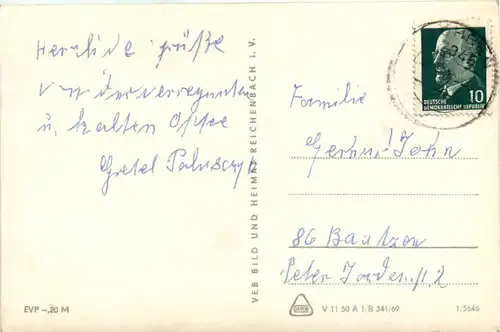 Herzliche Grüße
von der verregneten
u. kalten Ostsee
Gretel
VEB BILD UND HEIMAT REICHENBACH i. V.
10
DEUTSCHE
DEMOKRATISCHE REPUBLIK
Familie
Jahn
86 Bautzen
Peter
EVP -,20 M
V 11 50 A 1/B 341/69
1/5646